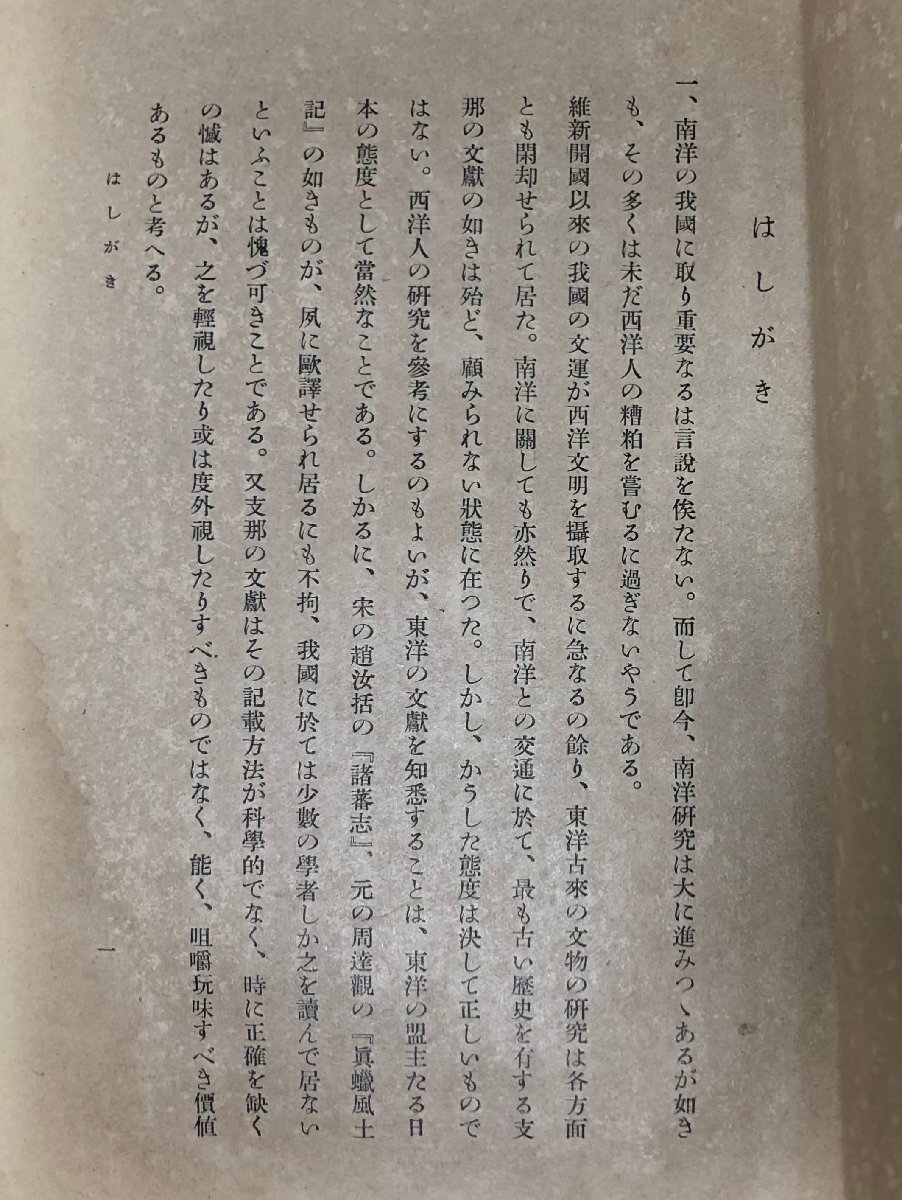 はしがき
一、南洋の我國に取り重要なるは言說を俟たない。而して卽今、南洋硏究は大に進みつゝあるが如き
も、その多くは未だ西洋人の糟粕を嘗むるに過ぎないやうである。
維新開國以來の我國の文運が西洋文明を攝取するに急なるの餘り、東洋古來の文物の硏究は各方面
とも閑却せられて居た。南洋に關しても亦然りで、南洋との交通に於て、最も古い歷史を有する支
那の文獻の如きは殆ど、顧みられない狀態に在つた。しかし、かうした態度は決して正しいもので
はない。西洋人の硏究を參考にするのもよいが、東洋の文獻を知悉することは、東洋の盟主たる日
本の態度として當然なことである。しかるに、宋の趙汝括の『諸蕃志』、元の周達觀の『眞蠟風土
記』の如きものが、夙に歐譯せられ居るにも不拘、我國に於ては少數の學者しか之を讀んで居ない
といふことは愧づ可きことである。又支那の文獻はその記載方法が科學的でなく、時に正確を缺く
の憾はあるが、之を輕視したり或は度外視したりすべきものではなく、能く、咀嚼玩味すべき價値
あるものと考へる。
はしがき
一